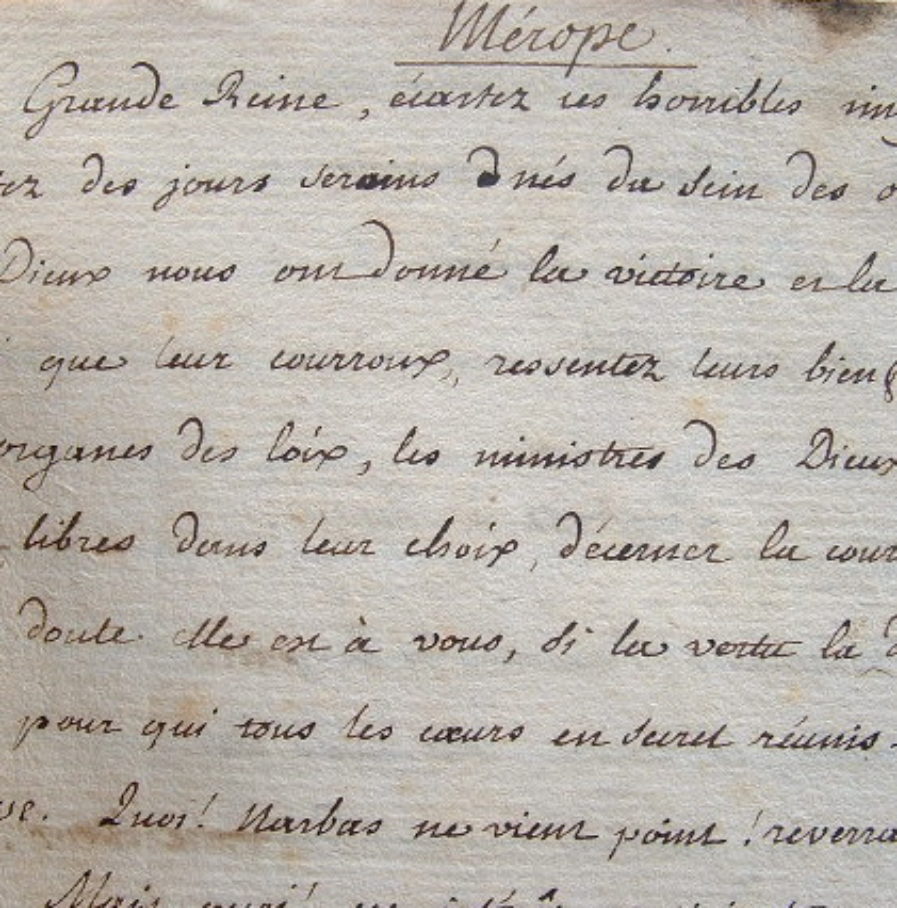 Mérope.
Grande Reine, écartez ces horribles
des jours serains nés du sein des
Dieux nous ont donné la victoire et la
que leur courroux, ressentez leurs bien
organes des loix, les ministres des Dieux
libres dans leur choix, décerner la cour
doute elle est à vous, si la vertu la d
pour qui tous les cœurs en secret réunis
Quoi! Narbas ne vient point! reverra
Mais quoi!